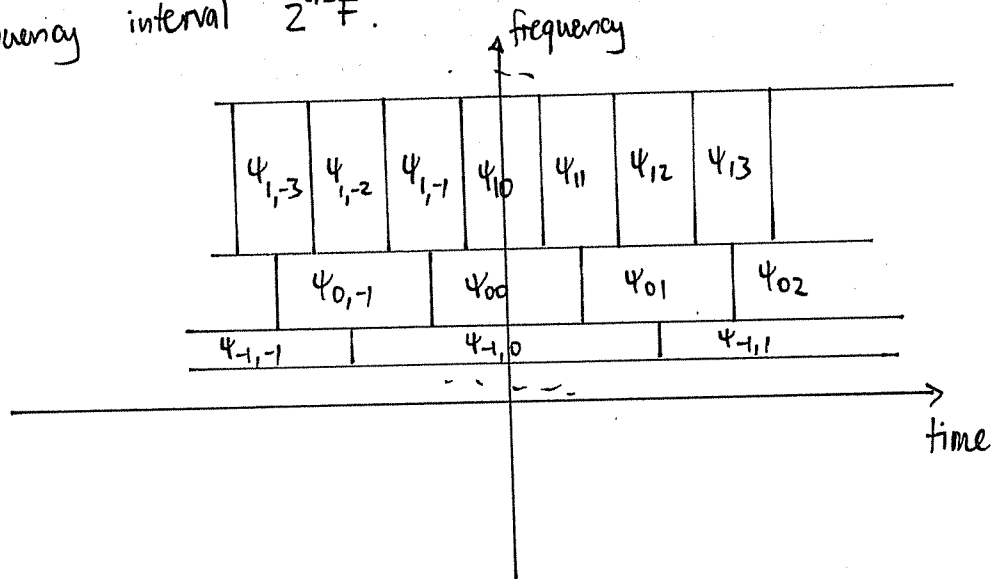 interval 2
F.
frequency
ψ1,-3 ψ1,-2 ψ1,-1 ψ10 ψ11 ψ12 ψ13
ψ0,-1 ψ00 ψ01 ψ02
ψ-1,-1 ψ-1,0 ψ-1,1
time